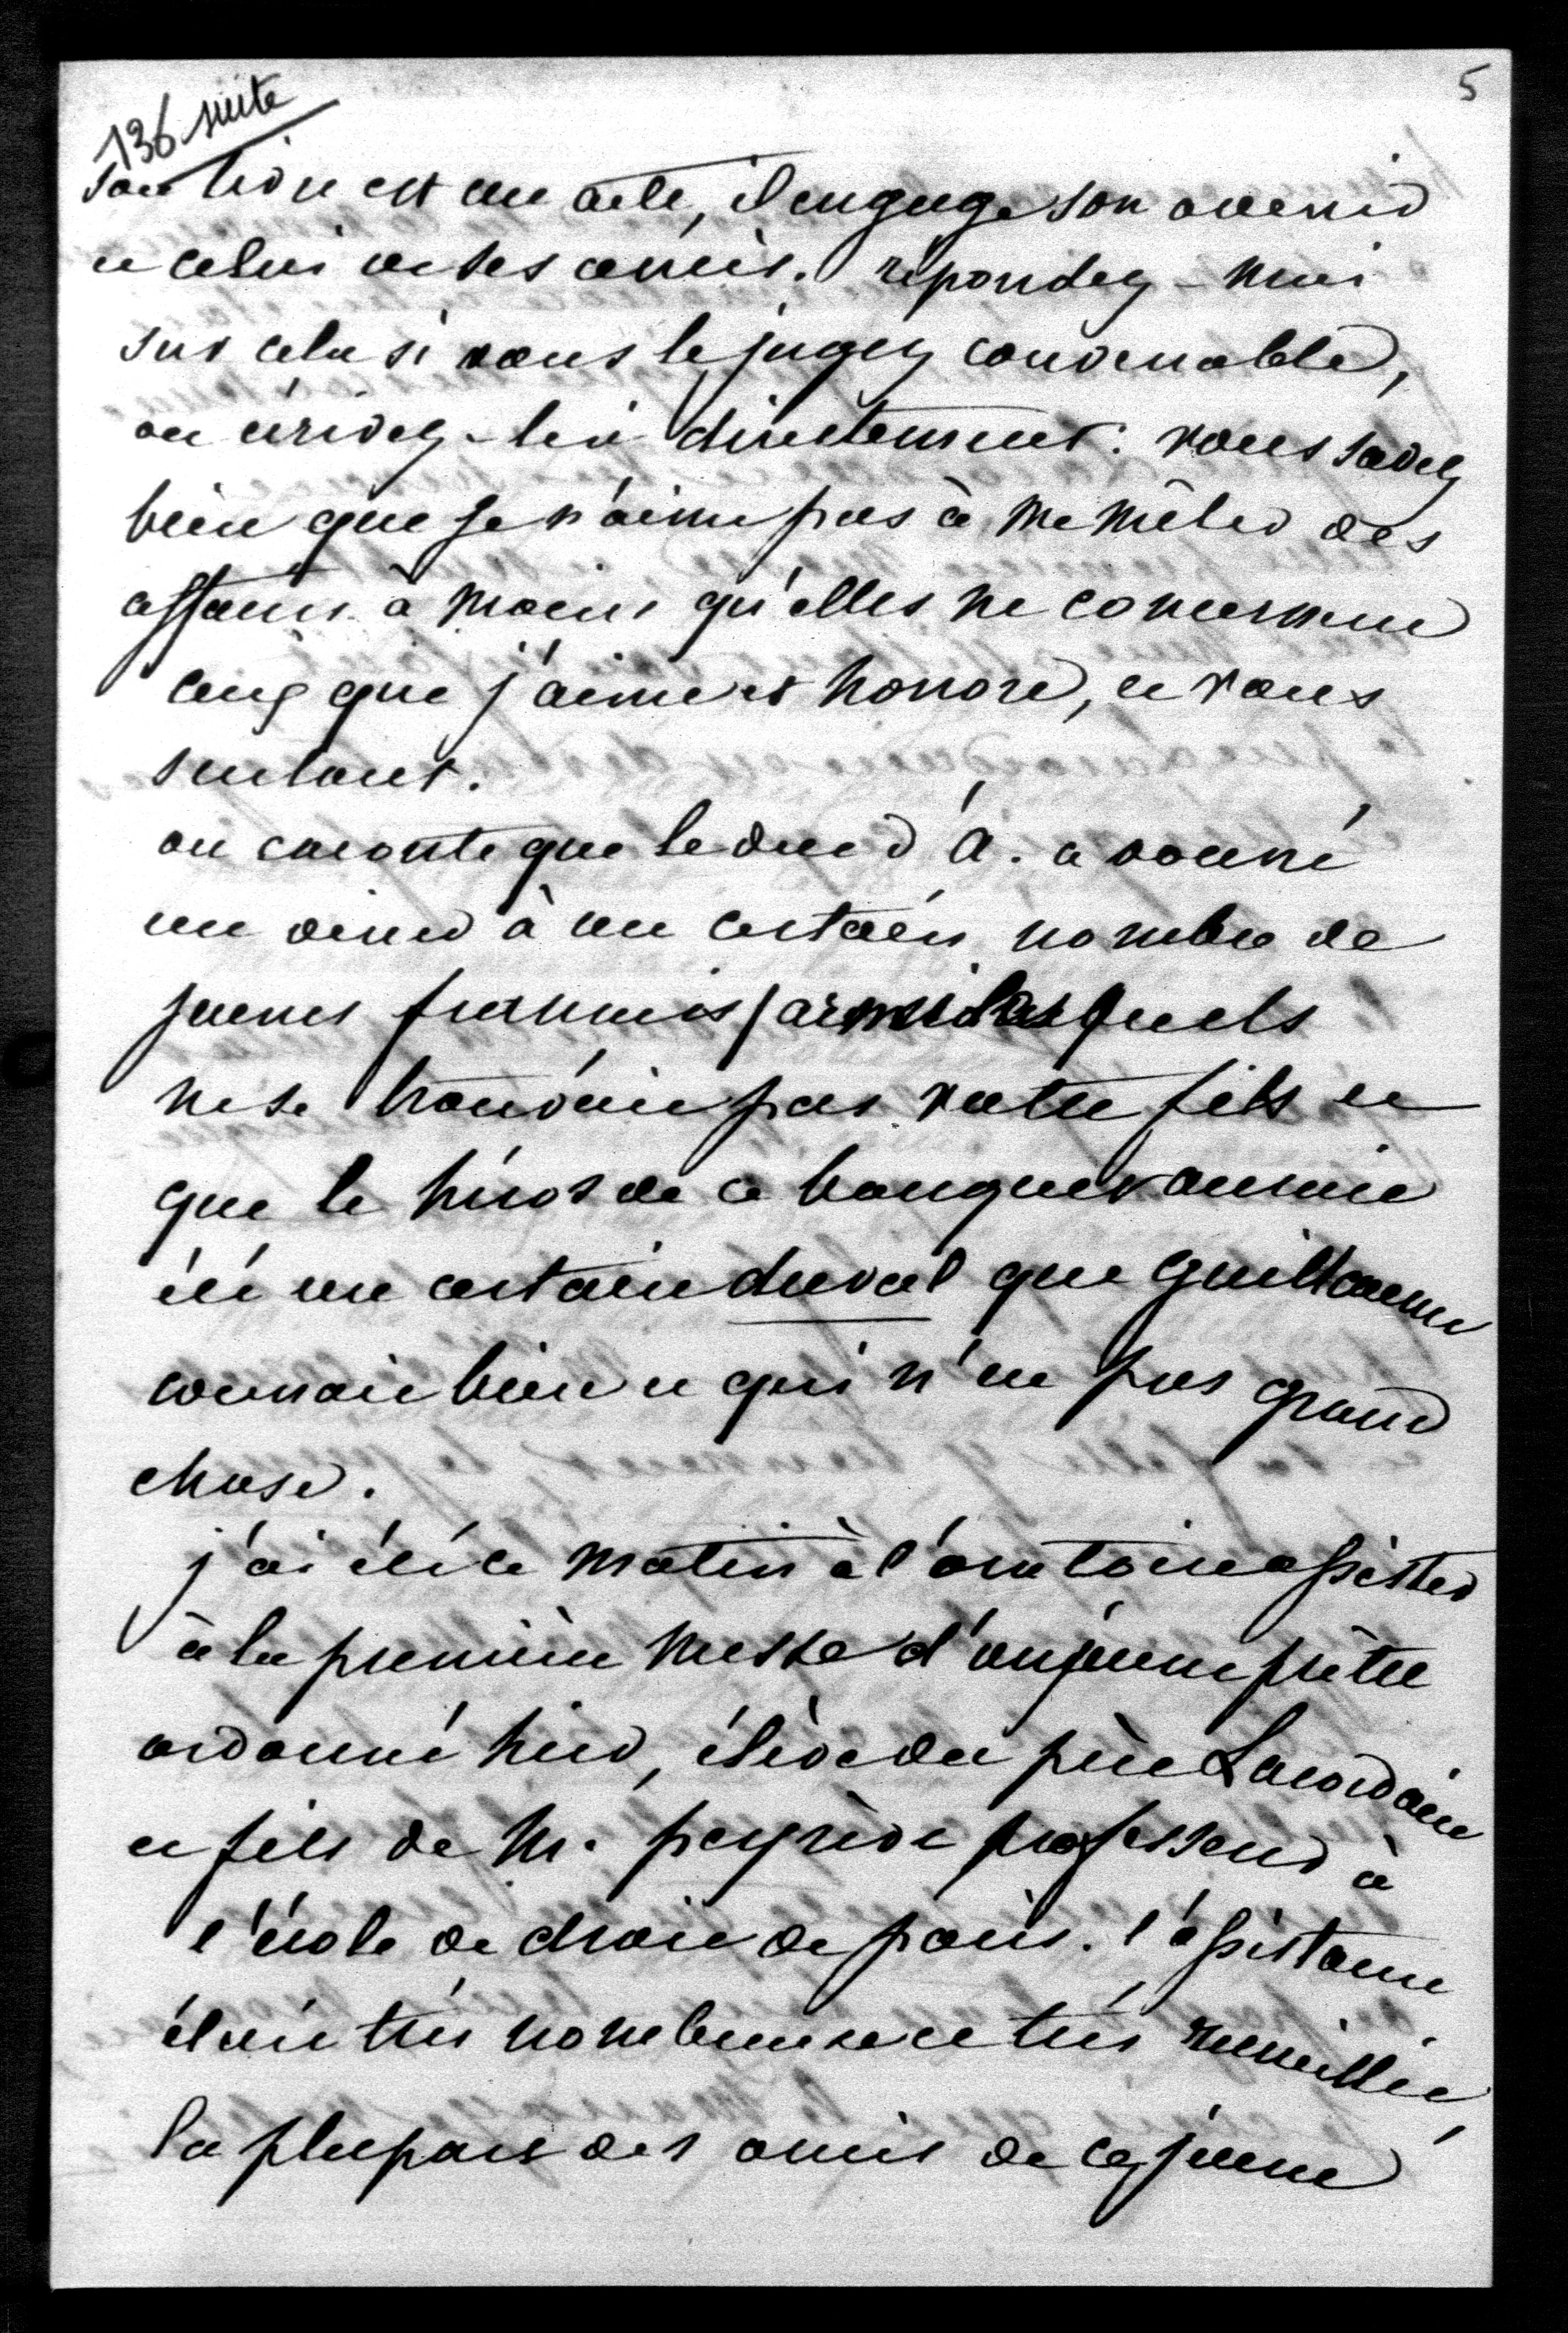 5
136 suite
son livre est un acte, il engage son avenir
et celui de ses amis. répondez-moi
sur cela si vous le jugez convenable,
ou écrivez-lui directement. vous savez
bien que je n'aime pas à me mêler des
affaires à moins qu'elles ne concernent
ceux que j'aime et honore, et vous
surtout.
on raconte que le duc d'A. a donné
un diner à un certain nombre de
jeunes français parmi lesquels
ne se trouvait pas votre fils et
que le héros de ce banquet aurait
été un certain duval que guillaume
connait bien et qui n'est pas grand
chose.
j'ai été ce matin à l'oratoire assister
à la première messe d'un jeune prêtre
ordonné hier, élève du père Lacordaire
et fils de M. peyrève professeur à
l'école de droit de paris. l'assistance
était très nombreuse et très recueillie,
la plupart des amis de ce jeune